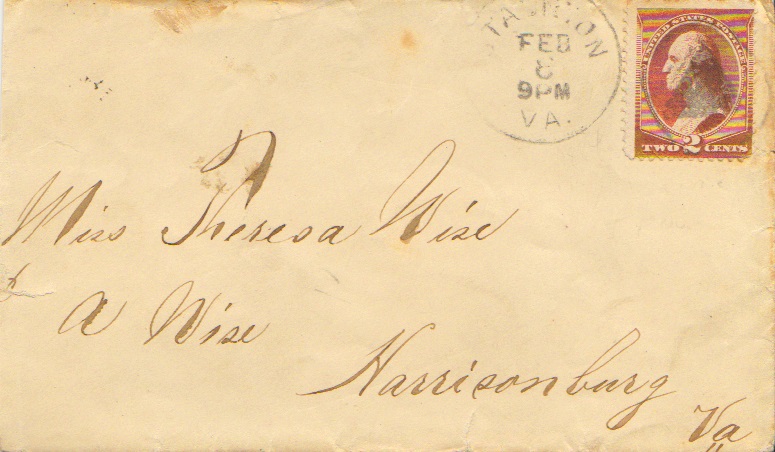 STAUNTON
FEB
8
9PM
VA.
UNITED STATES POSTAGE
TWO 2 CENTS
Miss Theresa Wise
A Wise
Harrisonburg
Va